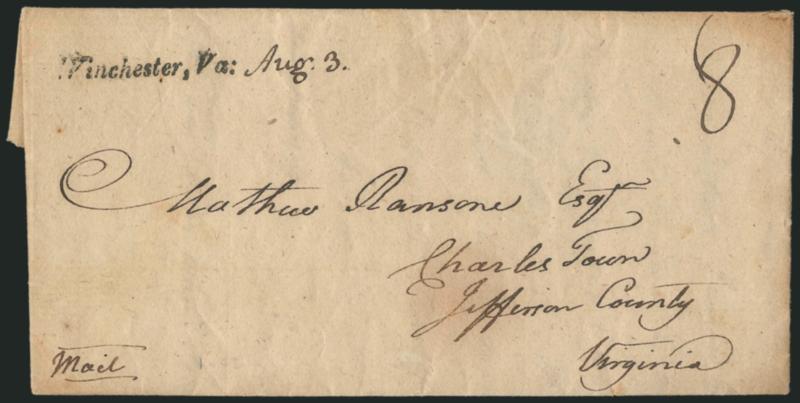 Winchester, Va: Aug. 3.
8
Mathew Ransone Esqr
Charles Town
Jefferson County
Virginia
Mail